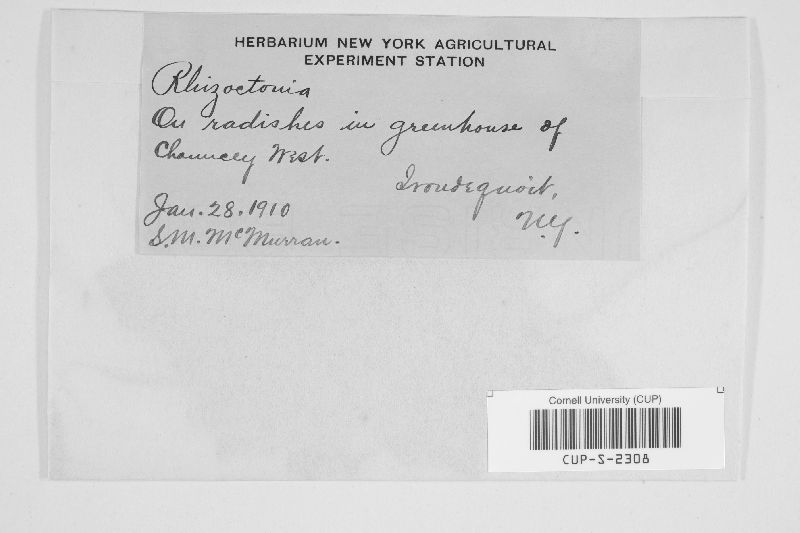 HERBARIUM NEW YORK AGRICULTURAL
EXPERIMENT STATION
Rhizoctonia
On radishes in greenhouse of
Chauncey West.
Irondequoit,
N.Y.
Jan. 28. 1910
S.M. McMurran.
Cornell University (CUP)
CUP-S-2308